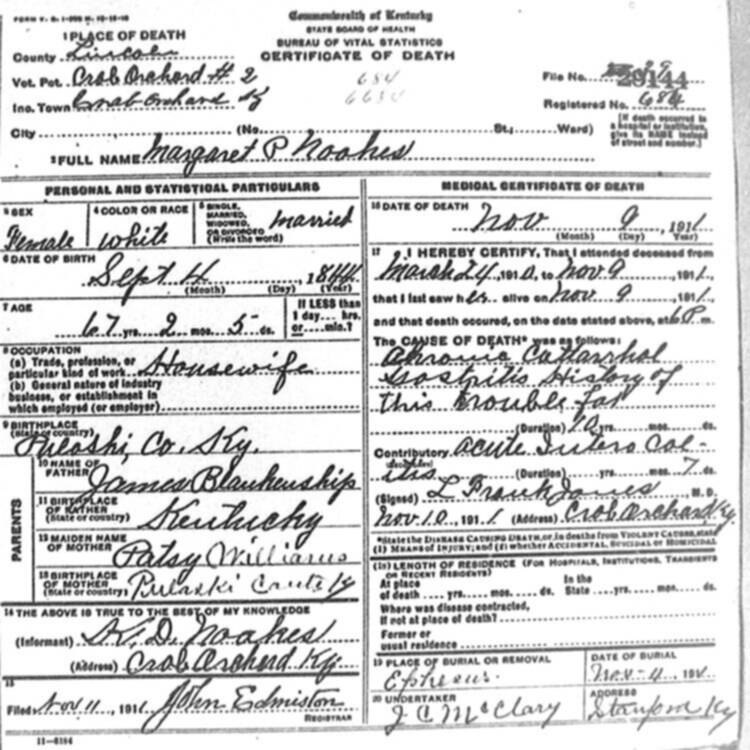 FORM V. S. 1-
Commonwealth of Kentucky
STATE BOARD OF HEALTH
BUREAU OF VITAL STATISTICS
CERTIFICATE OF DEATH
1 PLACE OF DEATH
County Lincoln
Vot. Pct. Crab Orchard # 2
Inc. Town Crab Orchard Ky
City (No. St.; Ward)
684
6630
File No. 29144
29
Registered No. 684
[If death occurred in a hospital or institution, give its NAME instead of street and number.]
2 FULL NAME Margaret P Noakes
PERSONAL AND STATISTICAL PARTICULARS
3 SEX
Female
4 COLOR OR RACE
White
5 SINGLE, MARRIED, WIDOWED, OR DIVORCED (Write the word)
Married
6 DATE OF BIRTH
Sept 4 1844
(Month) (Day) (Year)
7 AGE
67 yrs. 2 mos. 5 ds.
If LESS than 1 day... hrs. or.... min.?
8 OCCUPATION
(a) Trade, profession, or
particular kind of work Housewife
(b) General nature of industry
business, or establishment in
which employed (or employer)
9 BIRTHPLACE
(State or country)
Pulaski, Co. Ky.
PARENTS
10 NAME OF FATHER
James Blankenship
11 BIRTHPLACE OF FATHER
(State or country)
Kentucky
12 MAIDEN NAME OF MOTHER
Patsy Williams
13 BIRTHPLACE OF MOTHER
(State or country)
Pulaski Ky
14 THE ABOVE IS TRUE TO THE BEST OF MY KNOWLEDGE
(Informant) D. Noakes
(Address) Crab Orchard Ky
15
Filed Nov 11, 1911 John Edmiston
REGISTRAR
11-6184
MEDICAL CERTIFICATE OF DEATH
16 DATE OF DEATH
Nov 9 1911
(Month) (Day) (Year)
17 I HEREBY CERTIFY, That I attended deceased from
March 24, 1910, to Nov 9, 1911,
that I last saw her alive on Nov 9, 1911,
and that death occured, on the date stated above, at 6 P. m.
The CAUSE OF DEATH* was as follows:
Chronic Catarrhal
Gastritis History of
this trouble for
(Duration) 10 yrs. mos. ds.
Contributory acute Intero Col-
itis (Duration) yrs. mos. 7 ds.
(Signed) L Frank Jones M. D.
Nov 10, 1911 (Address) Crab Orchard Ky.
*State the DISEASE CAUSING DEATH, or, in deaths from VIOLENT CAUSES, state
(1) MEANS OF INJURY; and (2) whether ACCIDENTAL, SUICIDAL or HOMICIDAL
(18) LENGTH OF RESIDENCE (FOR HOSPITALS, INSTITUTIONS, TRANSIENTS
OR RECENT RESIDENTS)
At place of death .... yrs. mos. ds. In the State .... yrs. mos. ds.
Where was disease contracted,
if not at place of death?
Former or
usual residence
19 PLACE OF BURIAL OR REMOVAL
Ephesus.
DATE OF BURIAL
Nov-11, 191
20 UNDERTAKER
J C McClary
ADDRESS
Stanford Ky